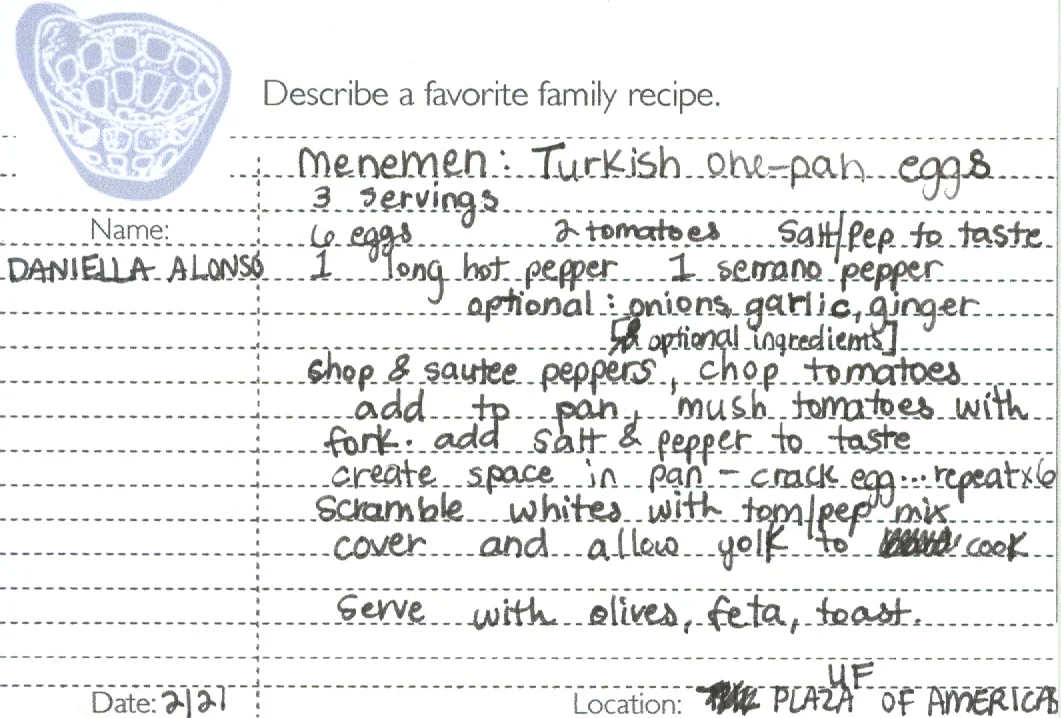 Describe a favorite family recipe.
Menemen: Turkish one-pan eggs
3 servings
Name:
6 eggs 2 tomatoes Salt/Pep to taste
DANIELLA ALONSO
1 long hot pepper 1 serrano pepper
optional: onions, garlic, ginger
[& optional ingredients]
chop & sautee peppers, chop tomatoes
add to pan, mush tomatoes with
fork. add salt & pepper to taste
create space in pan - crack egg...repeat x6
scramble whites with tom/pep mix
cover and allow yolk to cook
Serve with olives, feta, toast.
Date: 2/21
Location: UF PLAZA OF AMERICA